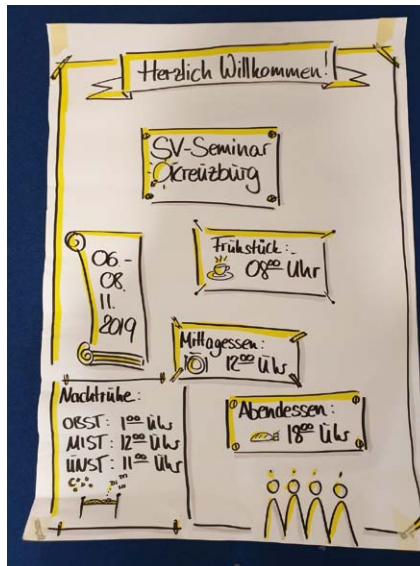 Herzlich Willkommen!
SV-Seminar
Kreuzburg
06-
08.
11.
2019
Frühstück:
08⁰⁰ Uhr
Mittagessen:
12⁰⁰ Uhr
Nachtruhe:
OBST: 1⁰⁰ Uhr
MIST: 12⁰⁰ Uhr
UNST: 11⁰⁰ Uhr
Abendessen:
18⁰⁰ Uhr